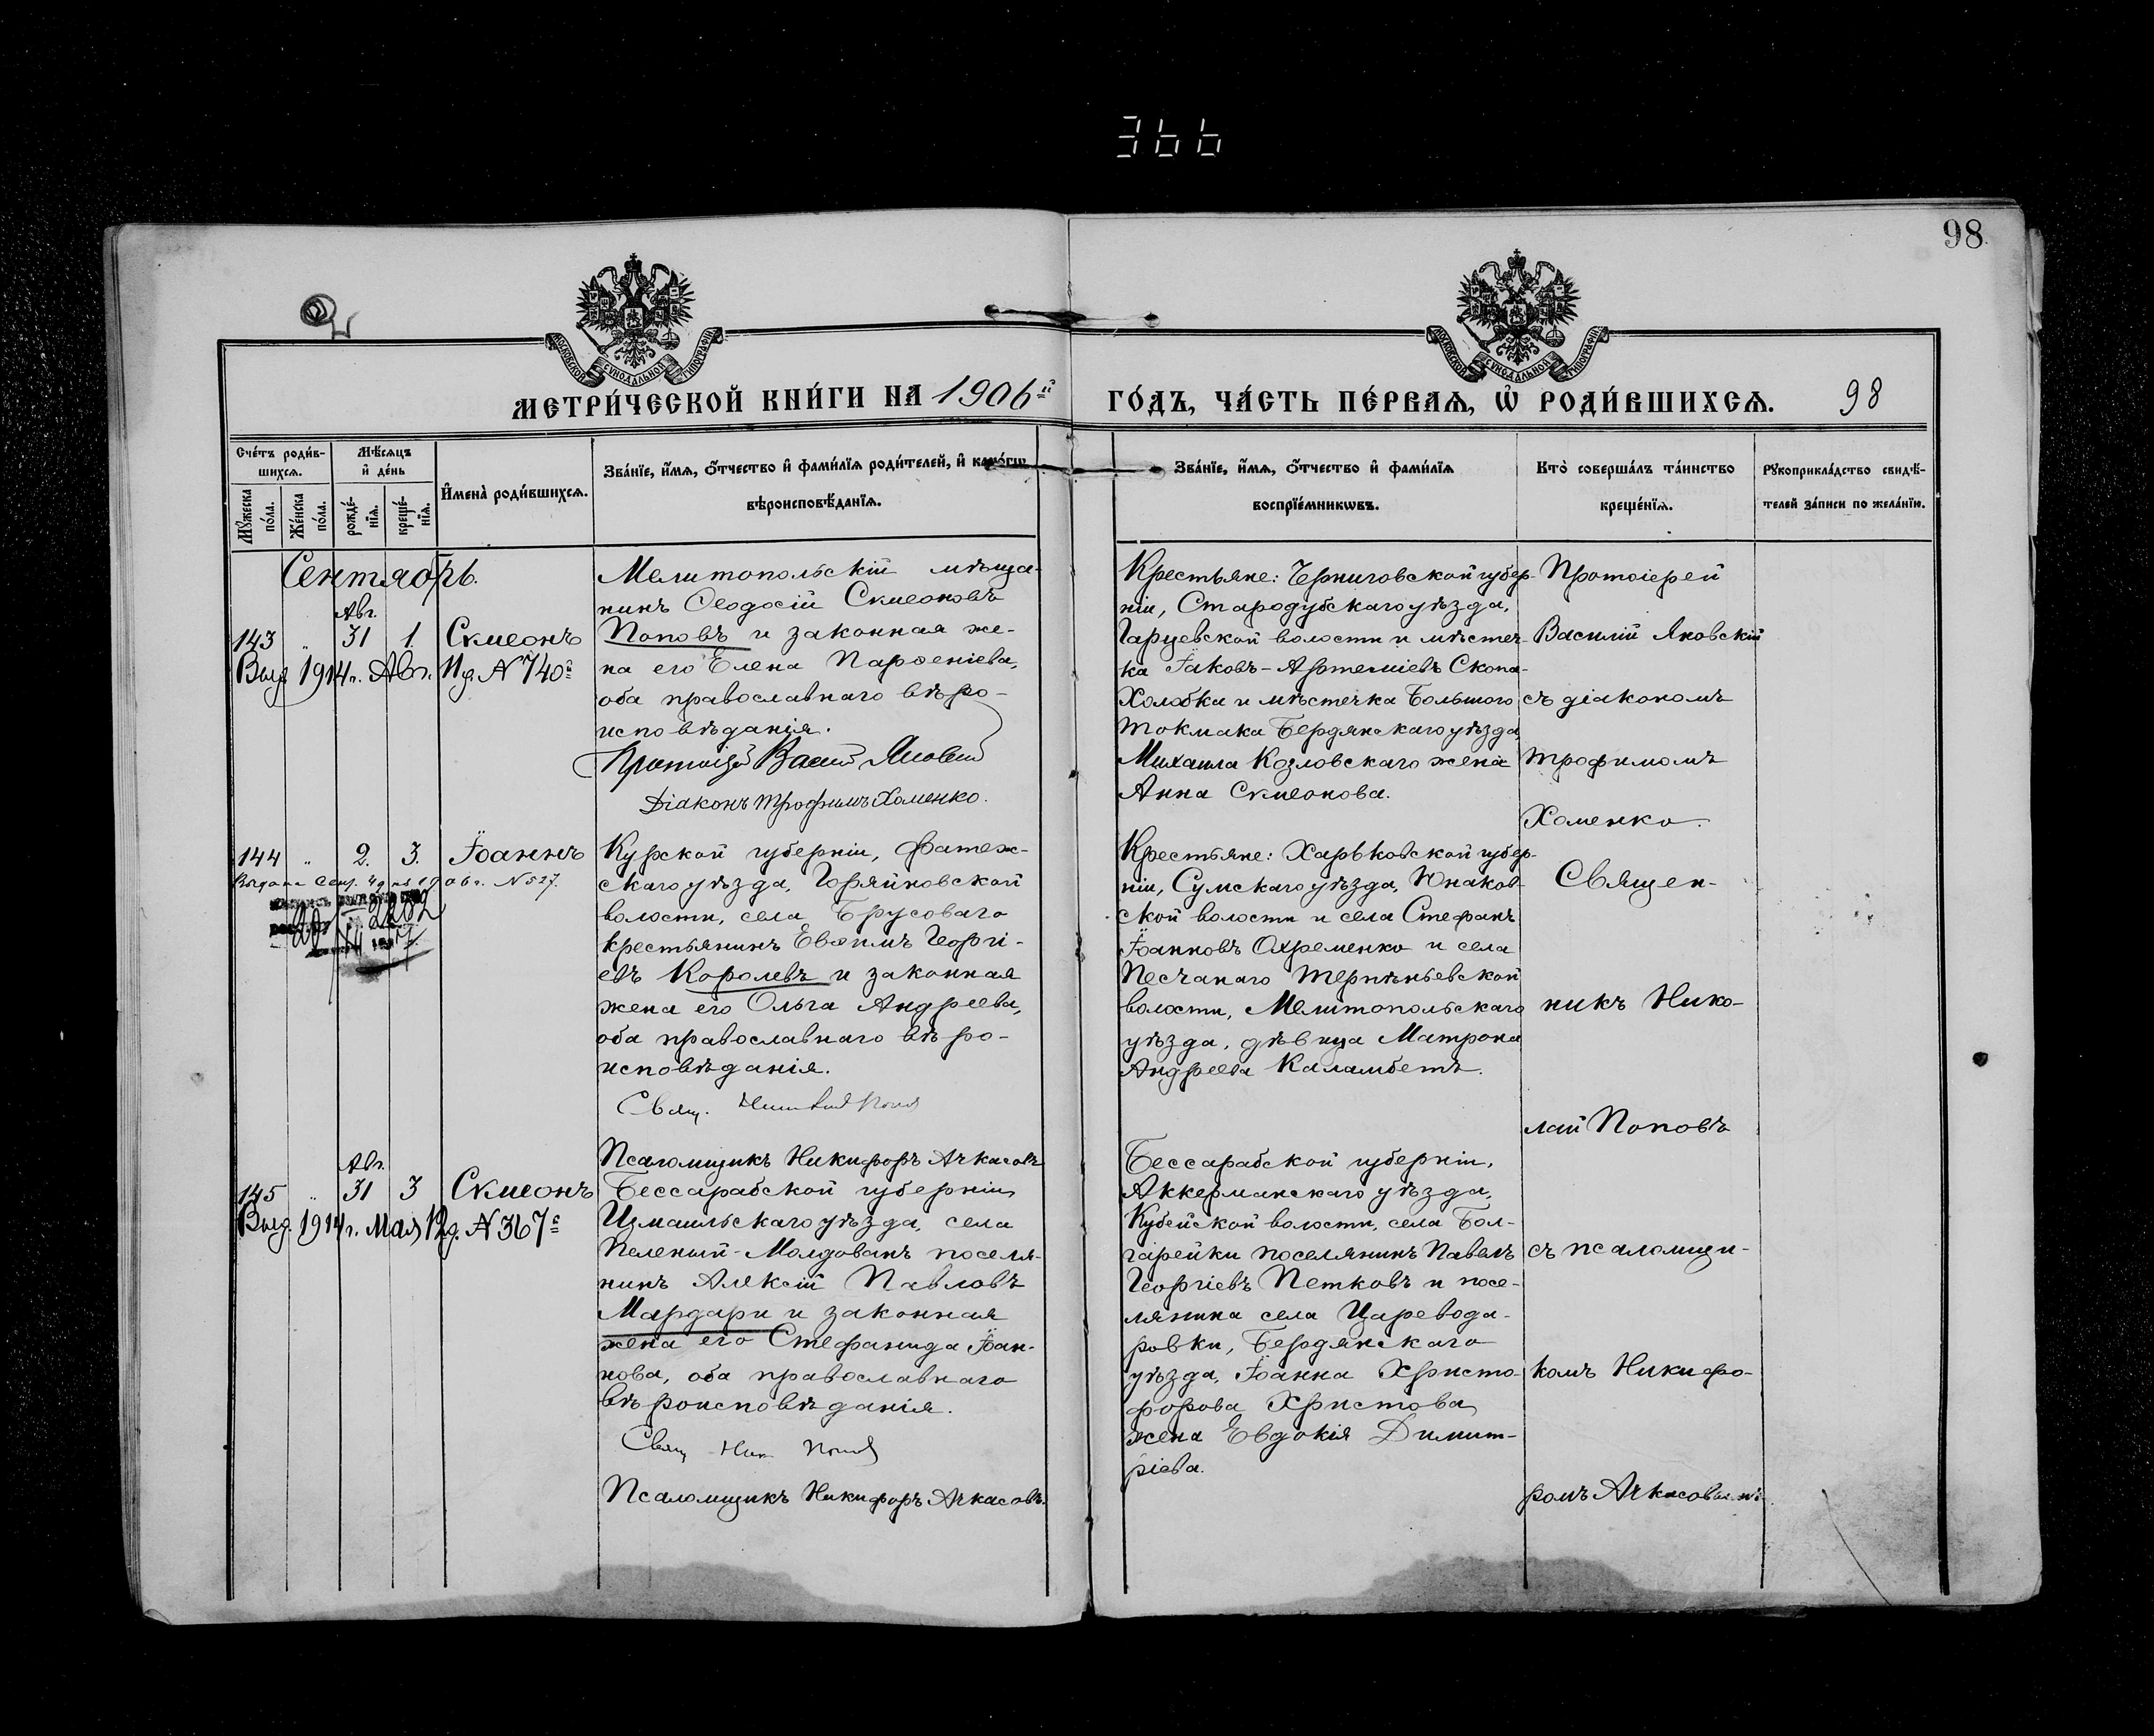 366
98
МОСКОВСКОЙ СѴНОДАЛЬНОЙ ТИПОГРАФІИ
МОСКОВСКОЙ СѴНОДАЛЬНОЙ ТИПОГРАФІИ
МЕТРИ́ЧЕСКОЙ КНИ́ГИ НА 1906й
ГО́ДЪ, ЧА́СТЬ ПЕ́РВАѦ, Ѡ҆ РОДИ́ВШИХСѦ. 98
Сче́тъ роди́в-
шихсѧ.
Мѣ́сѧцъ
и҆ де́нь
Мꙋ́жеска по́ла.
Же́нска по́ла.
рожде́-нїѧ.
креще́-нїѧ.
И҆мена̀ роди́вшихсѧ.
Зва́нїе, и҆́мѧ, ѻ҆́тчество и҆ фами́лїѧ роди́телей, и҆ како́гѡ
вѣроисповѣ́данїѧ.
Зва́нїе, и҆́мѧ, ѻ҆́тчество и҆ фами́лїѧ
воспрїе́мникѡвъ.
Кто̀ соверша́лъ та́инство
креще́нїѧ.
Рꙋкоприкла́дство свидѣ́-
телей за́писи по жела́нїю.
Сентябрь.
Авг.
143 " 31 1. Симеонъ
Выд. 1914 г. Авг. 11 д. № 740й
Мелитопольскій мѣща-
нинъ Ѳеодосій Симеоновъ
Поповъ и законная же-
на его Елена Парѳеніева,
оба православнаго вѣро-
исповѣданія.
Протоіерей Василій Яновскій
Діаконъ Трофимъ Хоменко.
Крестьяне: Черниговской губер-
ніи, Стародубскаго уѣзда,
волости и мѣстеч-
ка Іаковъ-Артеміевъ Скопа-
Холобка и мѣстечка Большого
Токмака Бердянскаго уѣзда,
Михаила Козловскаго жена
Анна Симеонова.
Протоіерей
Василій Яновскій
съ діакономъ
Трофимомъ
Хоменко.
144 " 2. 3. Іоаннъ
Выдана Сент. 4 д. 1912 г. № 527.
Курской губерніи, Фатеж-
скаго уѣзда, Горяйновской
волости, села Брусоваго
крестьянинъ Евѳимъ Георгі-
евъ Королевъ и законная
жена его Ольга Андреева,
оба православнаго вѣро-
исповѣданія.
Свящ. Николай Поповъ
Псаломщикъ Никифоръ Ачкасовъ
Крестьяне: Харьковской губер-
ніи, Сумскаго уѣзда, Юнаков-
ской волости и села Стефанъ
Іоанновъ Охременко и села
Песчанаго Терпѣньевской
волости, Мелитопольскаго
уѣзда, дѣвица Матрона
Андреева Каламбетъ.
Священ-
никъ Нико-
лай Поповъ
Авг.
145 " 31 3 Симеонъ
Выд. 1914 г. Мая 12 д. № 367й
Бессарабской губерніи
Измаильскаго уѣзда, села
Пелений-Молдованъ поселя-
нинъ Алексій Павловъ
Мардари и законная
жена его Стефанида Іоан-
нова, оба православнаго
вѣроисповѣданія.
Свящ. Ник. Поповъ
Псаломщикъ Никифоръ Ачкасовъ.
Бессарабской губерніи,
Аккерманскаго уѣзда,
Кубейской волости, села Бол-
гарейки поселянинъ Павелъ
Георгіевъ Петковъ и посе-
лянина села Царевода-
ровки, Бердянскаго
уѣзда, Іоанна Христо-
форова Христова
жена Евдокія Димит-
ріева.
съ псаломщи-
комъ Никифо-
ромъ Ачкасовымъ.